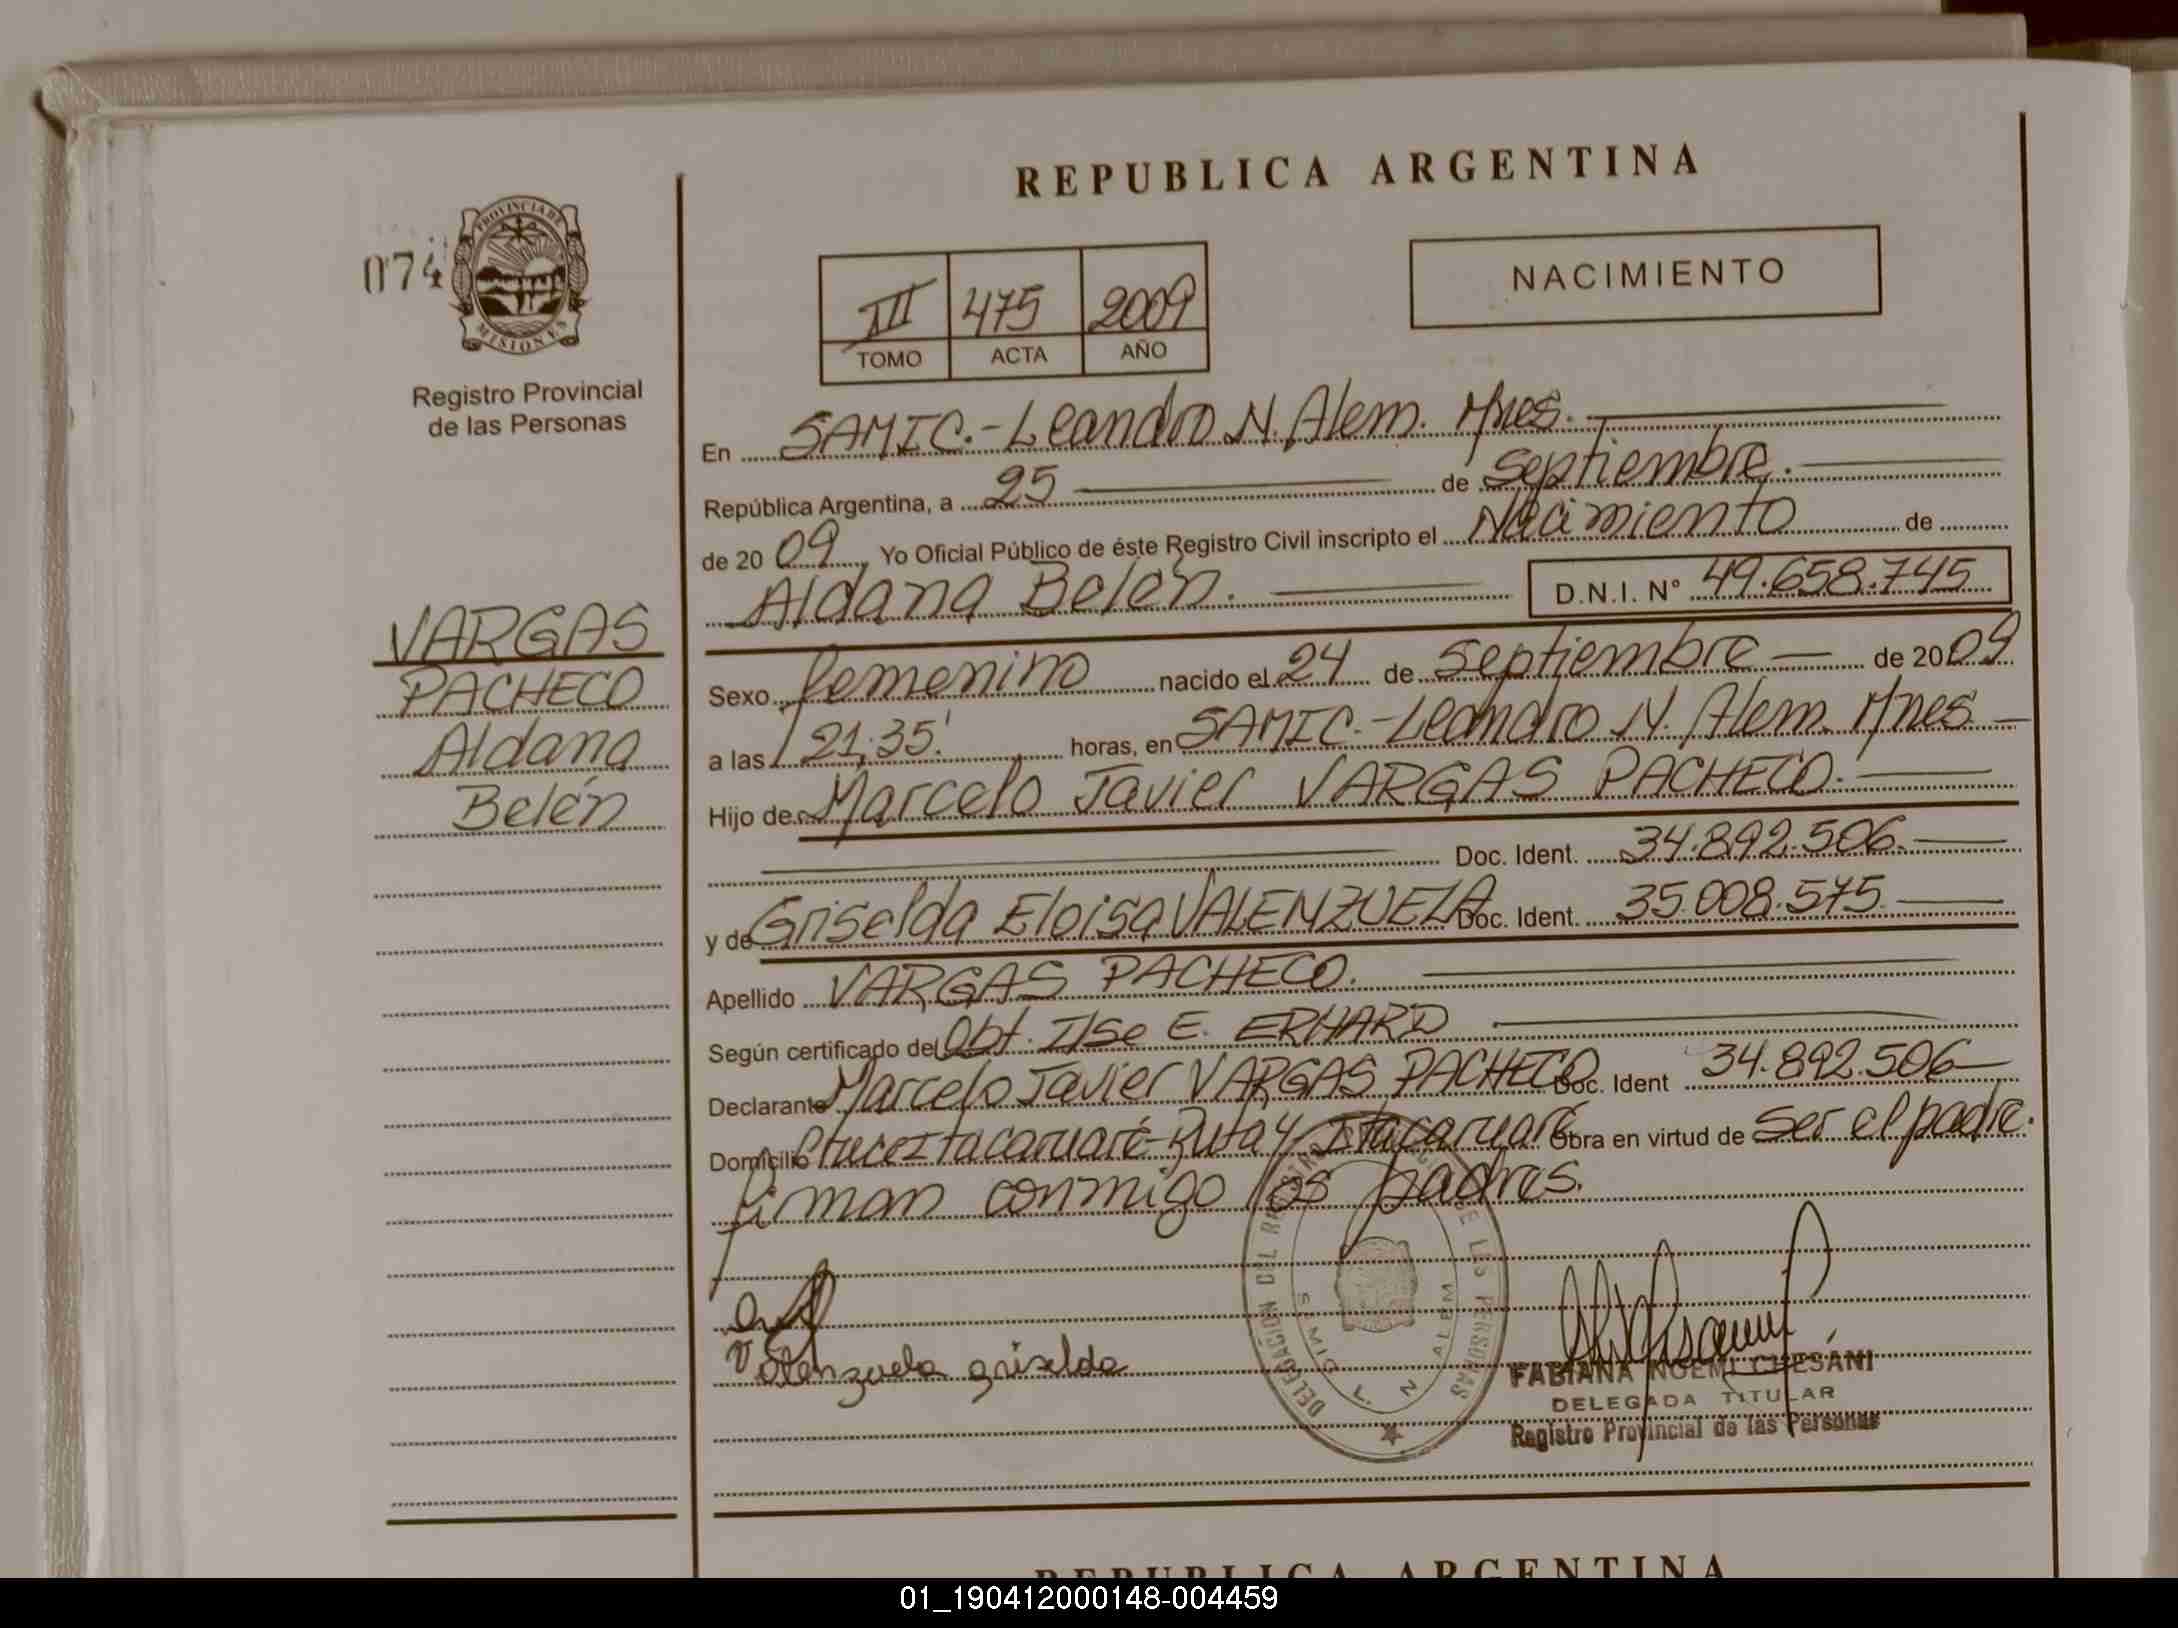 REPUBLICA ARGENTINA
074
PROVINCIA DE
MISIONES
Registro Provincial
de las Personas
VARGAS
PACHECO
Aldana
Belén
III 475 2009
TOMO ACTA AÑO
NACIMIENTO
En SAMIC.-Leandro N. Alem. Mnes.
República Argentina, a 25 de Septiembre.
de 2009, Yo Oficial Público de éste Registro Civil inscripto el Nacimiento de
Aldana Belén. D.N.I. N° 49.658.745
Sexo femenino nacido el 24 de Septiembre de 2009
a las 21,35' horas, en SAMIC.-Leandro N. Alem. Mnes
Hijo de Marcelo Javier VARGAS PACHECO.
Doc. Ident. 34.892.506.
y de Griselda Eloisa VALENZUELA Doc. Ident. 35.008.575
Apellido VARGAS PACHECO.
Según certificado de Obt. Ilse E. ERHARD
Declarante Marcelo Javier VARGAS PACHECO Doc. Ident 34.892.506
Domicilio Itacaruaré-Ruta 4 Itacaruaré Obra en virtud de ser el padre.
firman conmigo los padres.
Valenzuela griselda
DELEGACION DEL REGISTRO DE LAS PERSONAS
SAMIC L. N. ALEM
FABIANA NOEMI CHESANI
DELEGADA TITULAR
Registro Provincial de las Personas
REPUBLICA ARGENTINA
01_190412000148-004459